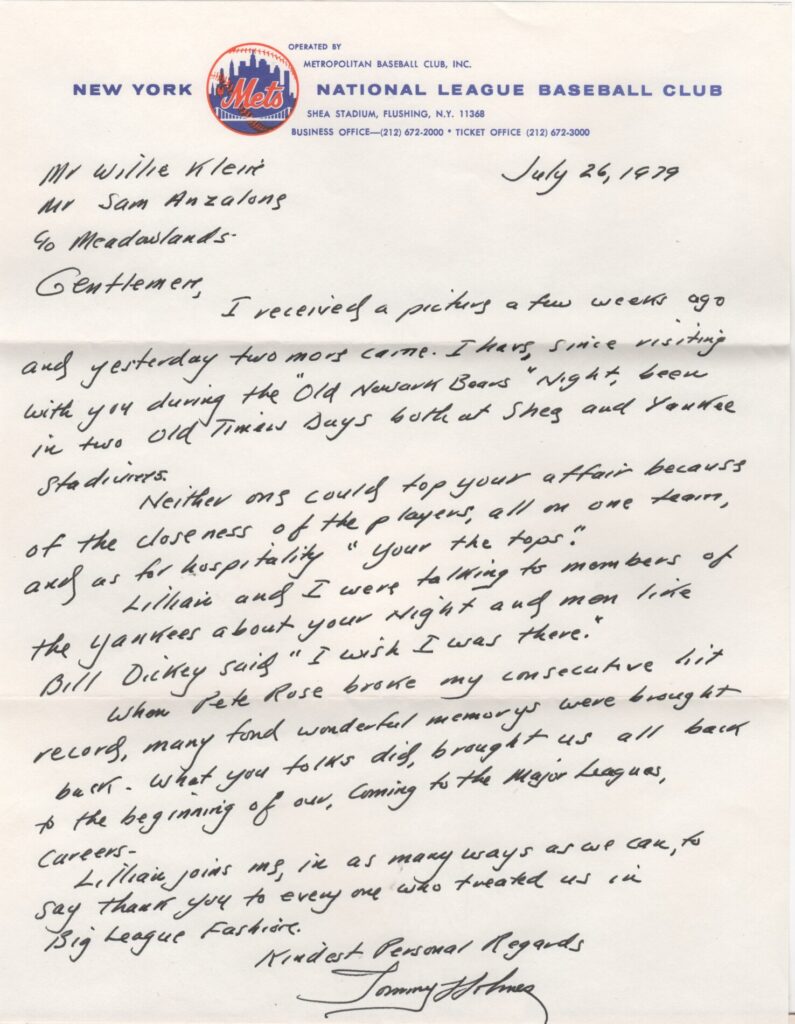 OPERATED BY
METROPOLITAN BASEBALL CLUB, INC.
NEW YORK Mets NATIONAL LEAGUE BASEBALL CLUB
SHEA STADIUM, FLUSHING, N.Y. 11368
BUSINESS OFFICE—(212) 672-2000 * TICKET OFFICE (212) 672-3000
Mr Willie Klein
July 26, 1979
Mr Sam Anzalone
c/o Meadowlands-
Gentlemen,
I received a picture a few weeks ago
and yesterday two more came. I have, since visiting
with you during the "Old Newark Bears" Night, been
in two Old Timers Days both at Shea and Yankee
Stadiums.
Neither one could top your affair because
of the closeness of the players, all on one team,
and as for hospitality "your the tops."
Lillian and I were talking to members of
the Yankees about your Night and men like
Bill Dickey said "I wish I was there."
When Pete Rose broke my consecutive hit
record, many fond wonderful memorys were brought
back. What you folks did, brought us all back
to the beginning of our, Coming to the Major Leagues,
Careers-
Lillian joins me, in as many ways as we can, to
say thank you to every one who treated us in
Big League Fashion.
Kindest Personal Regards
Tommy Holmes